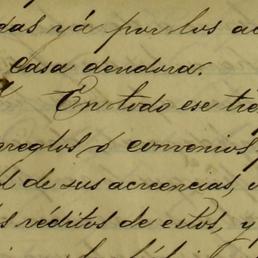 das yá por los ac
casa deudora.
En todo ese tie
reglos ó convenios
de sus acreencias,
réditos de estos, y